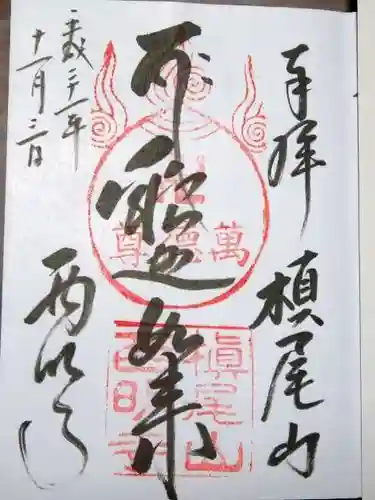 奉拝
槇尾山
如来
平成二十一年
十一月三日
西明寺
萬徳尊
槇尾山
西明寺